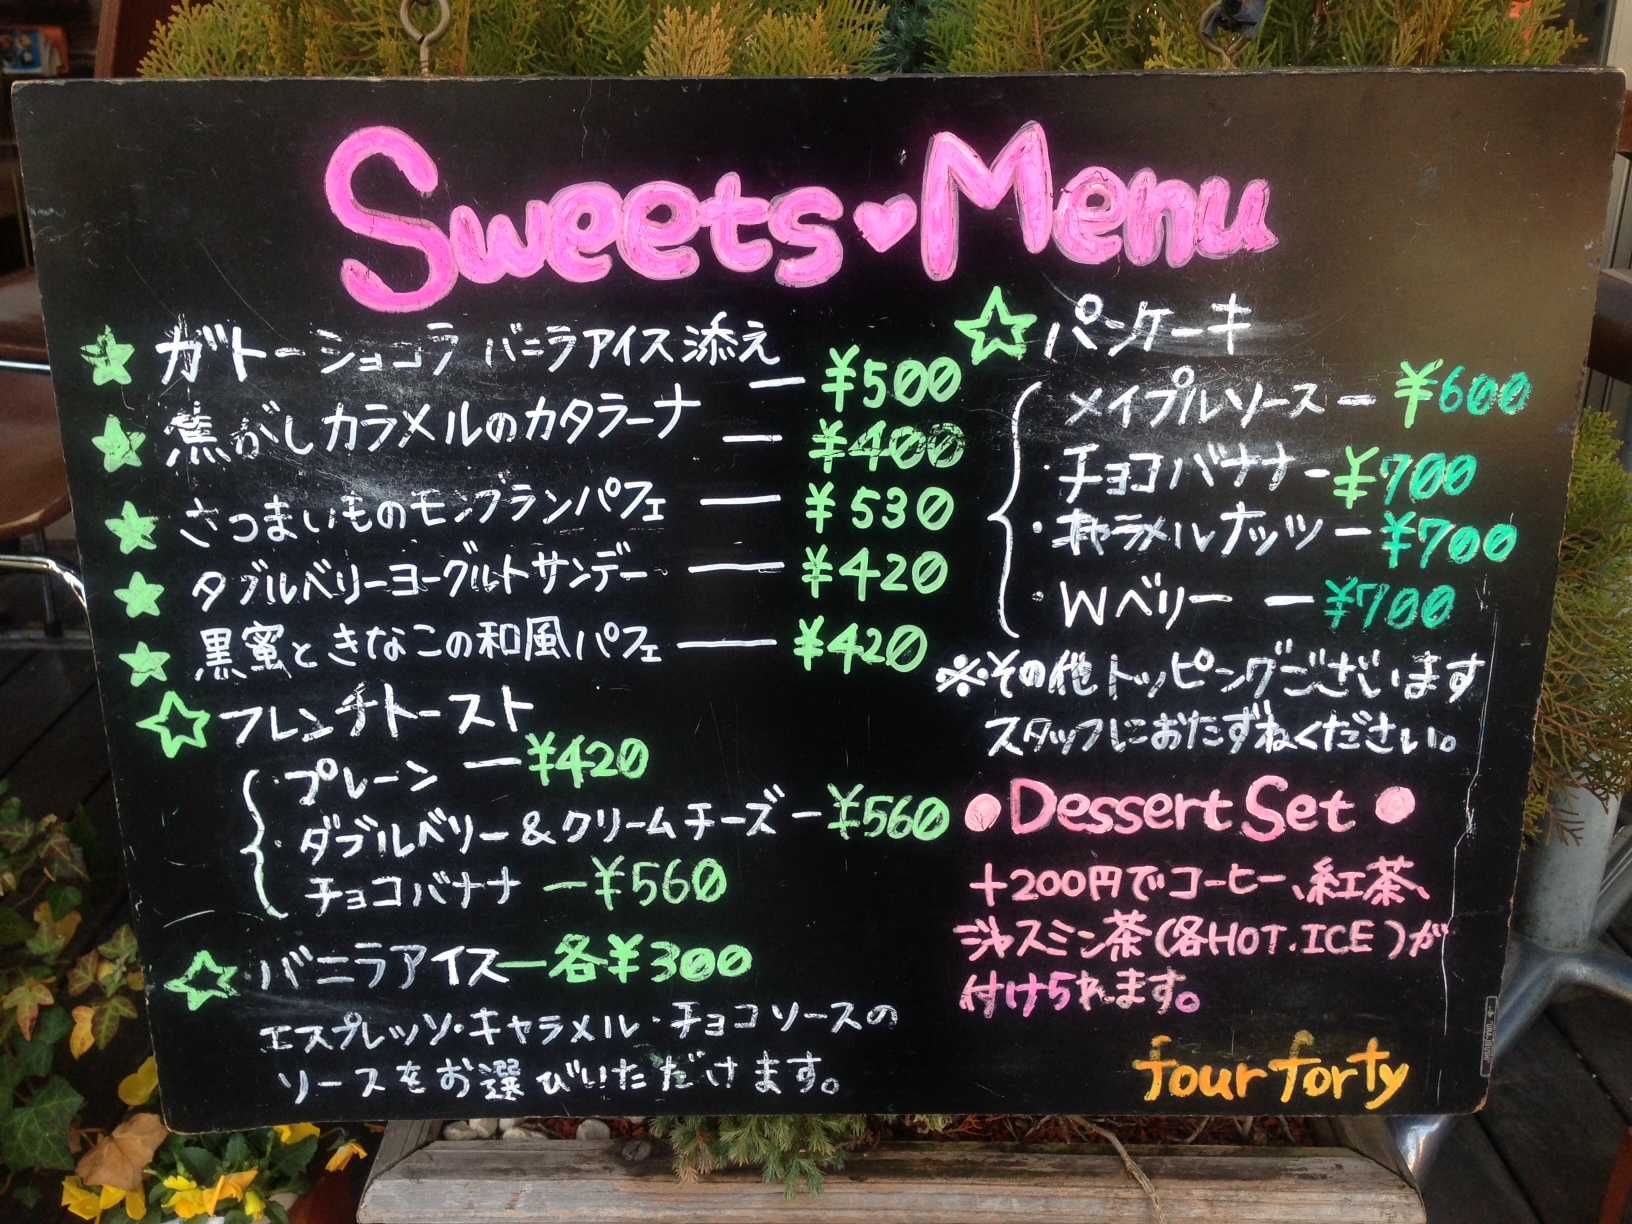 Sweets♥Menu
★ガトーショコラ バニラアイス添え ー ¥500
★焦がしカラメルのカタラーナ ー ¥400
★さつまいものモンブランパフェ ー ¥530
★ダブルベリーヨーグルトサンデー ー ¥420
★黒蜜ときなこの和風パフェ ー ¥420
☆フレンチトースト
・プレーン ー ¥420
・ダブルベリー&クリームチーズ ー ¥560
チョコバナナ ー ¥560
☆バニラアイス ー 各¥300
エスプレッソ・キャラメル・チョコソースの
ソースをお選びいただけます。
☆パンケーキ
メイプルソース ー ¥600
・チョコバナナ ー ¥700
・キャラメルナッツ ー ¥700
・Wベリー ー ¥700
※その他トッピングございます
スタッフにおたずねください。
●Dessert Set●
+200円でコーヒー、紅茶、
ジャスミン茶(各HOT.ICE)が
付けられます。
four forty